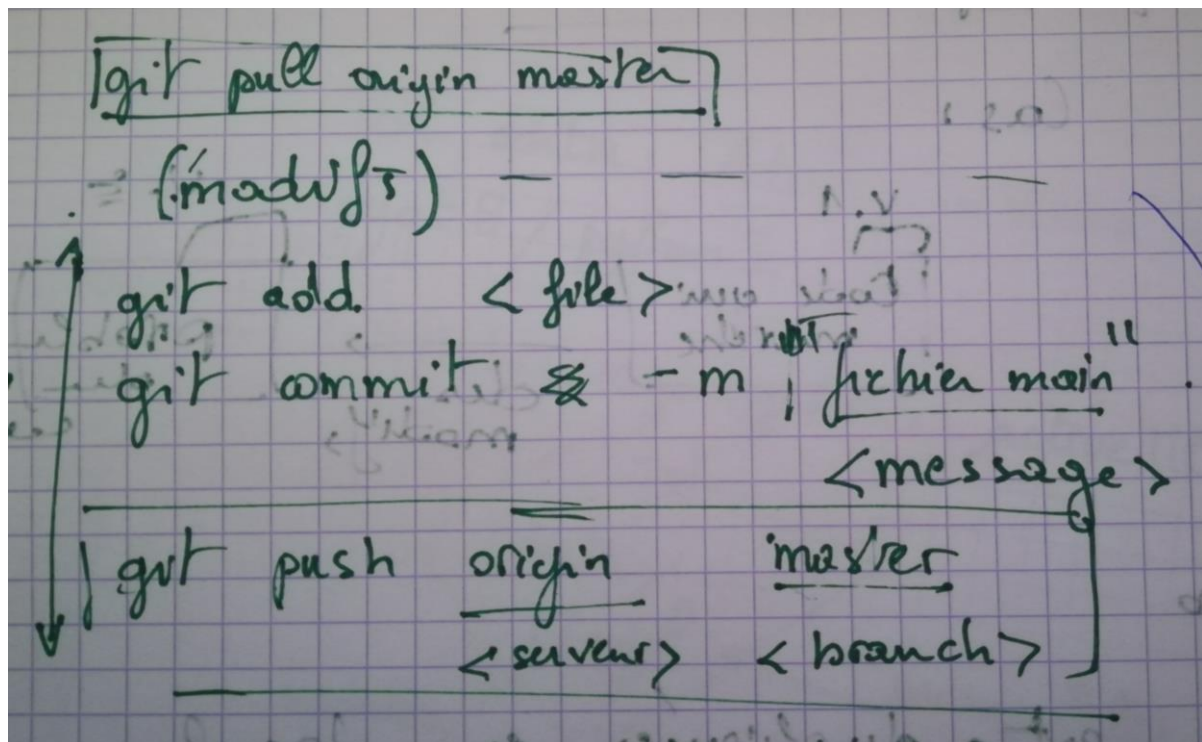 git pull origin master
(modifs)
git add. <file>
git commit -m "fichier main"
<message>
git push origin master
<serveur> <branch>